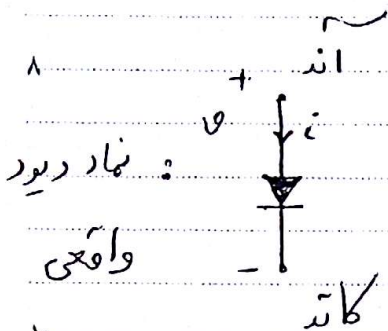 آند
۸ +
v i
نماد دیود :
واقعی
-
کاتد